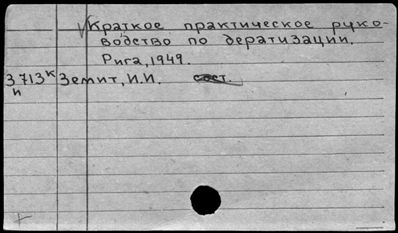 Краткое практическое руко-
водство по дератизации.
Рига, 1949.
3713к Земит, И.И. сост.
и